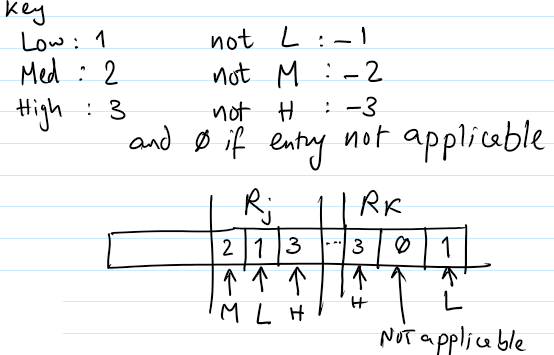 Key
Low : 1 not L : -1
Med : 2 not M : -2
High : 3 not H : -3
and ø if entry not applicable
Rj RK
2 1 3 ... 3 ø 1
M L H H L
NOT applicable